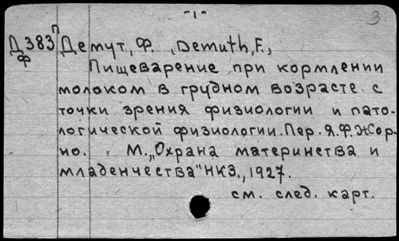 -1- 3
Д383 Демут, Ф. , Demuth, F.,
ф Пищеварение при кормлении
молоком в грудном возрасте с
точки зрения физиологии и пато-
логической физиологии. Пер. Я.Ф. Жор-
но. М., „Охрана материнства и
младенчества" НКЗ., 1927.
см. след. карт.